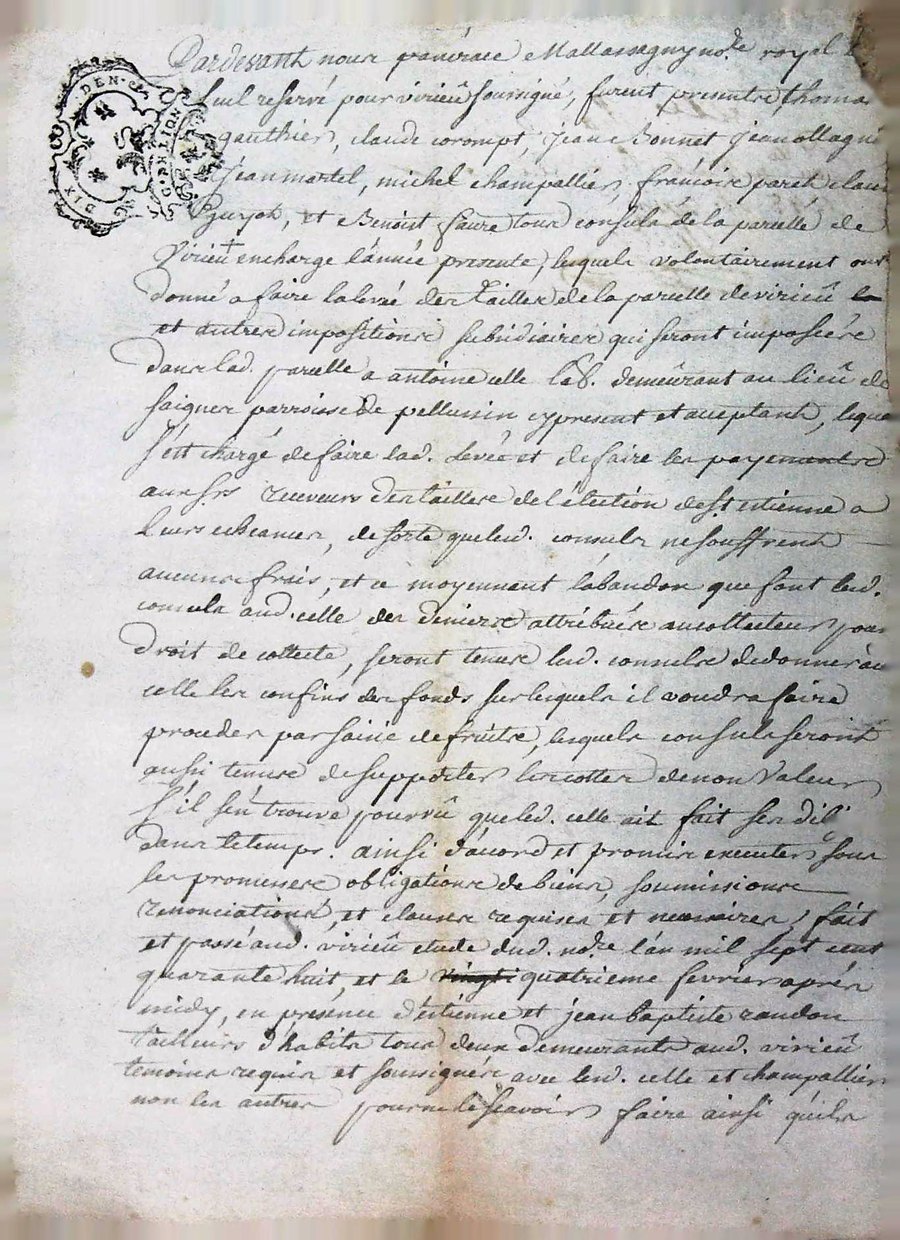 DIX DEN.
G. DE LION
Pardevant nous pancrace Mallassagny no.re royal
seul reservé pour virieû soussigné, furent presentre thoma
gauthier, claude corompt, jean Bonnet jean Magni
jean martel, michel champallier, francoise paret clau
Guyot, et Benoist faure tous consuls de la parcelle de
Virieû en charge l'année presente, lesquels volontairement ont
donné a faire la levée des tailles de la parcelle de virieû
et autres impositions subsidiaires qui seront impossées
dans lad. parcelle a antoine celle lab. demeurant au lieû de
saignes parroisse de pellussin cy present et aceptant, leque
s'est chargé de faire lad. Levée et de faire les payements
aux srs receveurs des tailles de l'election de st etienne a
leurs echeances, de sorte que led. consuls ne souffrent
aucuns frais, et ce moyennant l'abandon que font led.
consuls aud. celle des deniers attribués au collecteur pour
droit de collecte, seront tenus led. consuls de donner au
celle les confins des fonds sur lesquels il voudra faire
proceder par saisie de fruits, lesquels consuls seront
aussi tenus de supporter les cottes de non valeur
s'il s'en trouve pourvû que led. celle ait fait ses dili
dans le temps. ainsi d'acord et promis executer sous
les promesses obligations de biens, soumissions
renonciations, et clauses requises et necessaires, fait
et passé aud. virieû etude dud. no.re l'an mil sept cent
quarante huit, et le vingt quatrieme fevrier aprés
midy, en présence d'etienne et jean baptiste randon
tailleurs d'habits tous deux demeurants aud. virieû
temoins requis et soussignés avec led. celle et champallier
non les autres pour ne le scavoir faire ainsi qu'ils